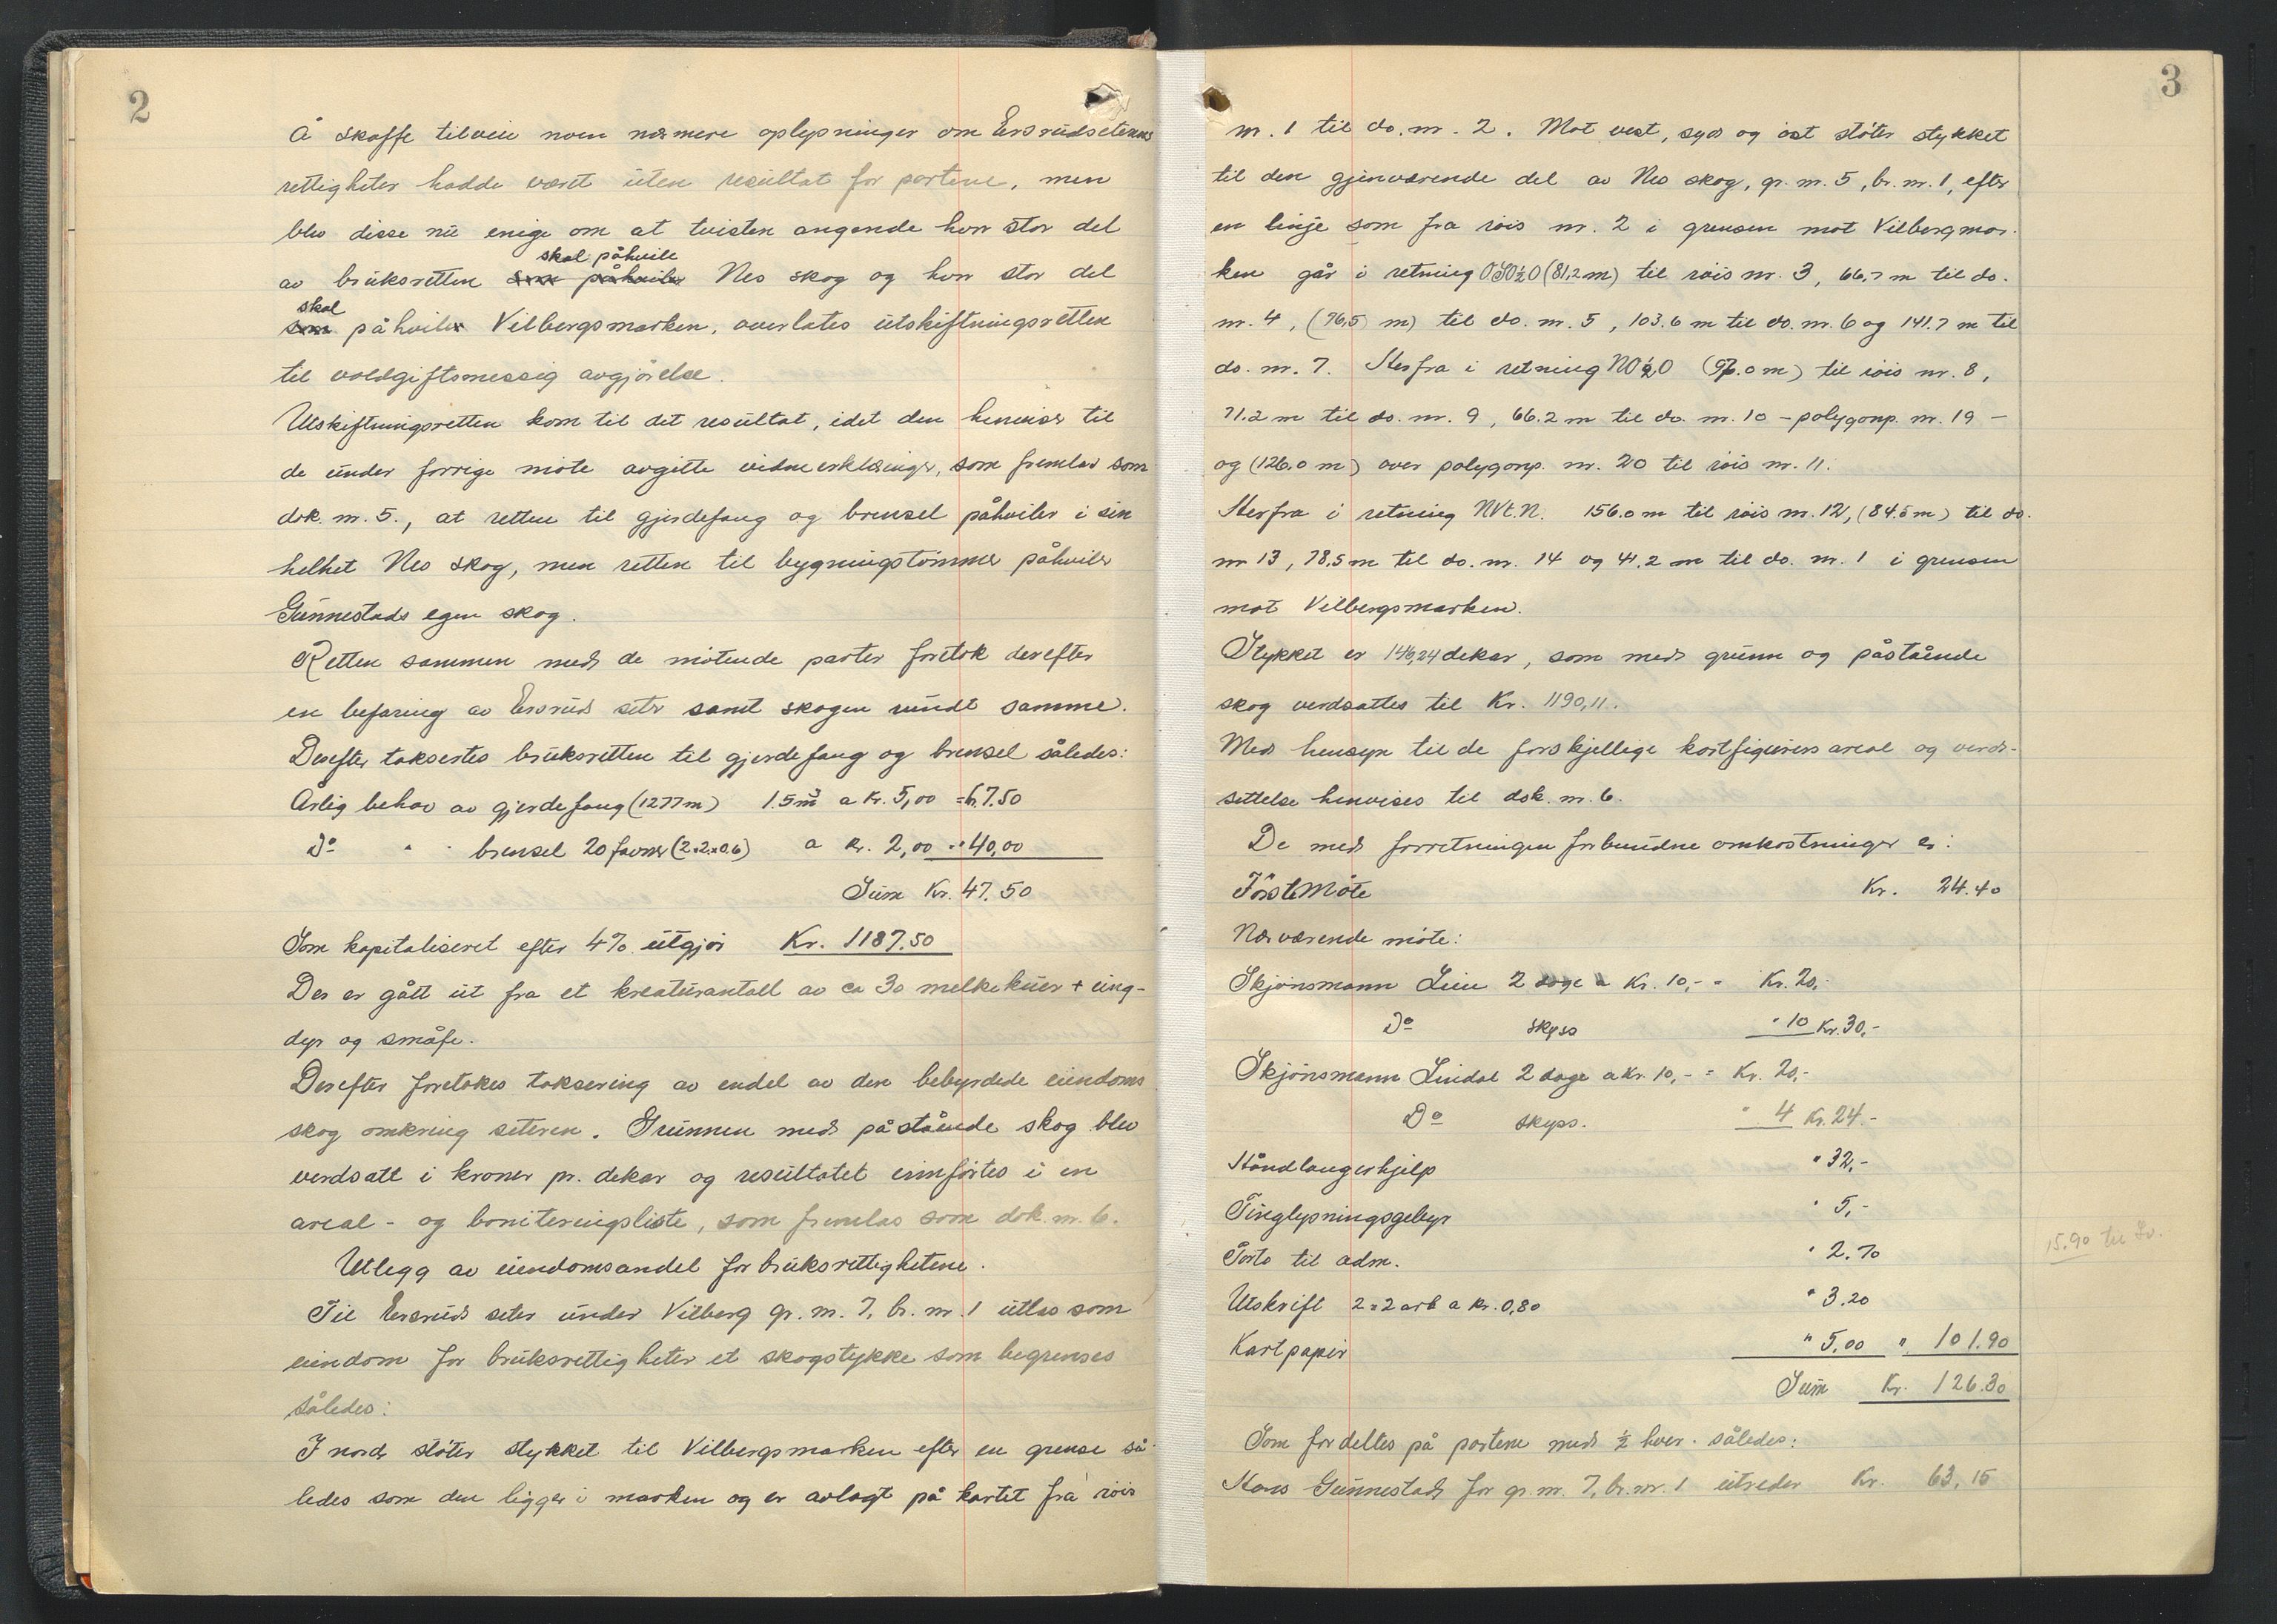 2
Å skaffe tilveie noen nærmere oplysninger om Ersrudseterens
rettigheter hadde været uten resultat for partene, men
blev disse nu enige om at tvisten angående hvor stor del
skal påhvile
av bruksretten som påhviler Nes skog og hvor stor del
skal
som påhviler Vilbergsmarken, overlates utskiftningsretten
til voldgiftsmessig avgjörelse.
Utskiftningsretten kom til det resultat, idet den henviser til
de under forrige möte avgitte vidneerklæringer, som fremlas som
dok. nr. 5., at retten til gjerdefang og brensel påhviler i sin
helhet Nes skog, men retten til bygningstömmer påhviler
Gunnestads egen skog.
Retten sammen med de mötende parter foretok derefter
en befaring av Ersrud seter samt skogen rundt samme.
Derefter taksertes bruksretten til gjerdefang og brensel således:
Årlig behov av gjerdefang (1277 m) 1.5 m³ a Kr. 5,00 = kr. 7.50
Do " " brensel 20 favner (2×2×0.6) a kr. 2,00 = " 40,00
Sum Kr. 47.50
Som kapitaliseret efter 4% utgjör Kr. 1187.50
Der er gått ut fra et kreaturantall av ca 30 melkekuer + ung-
dyr og småfe.
Derefter foretokes taksering av endel av den bebyrdede eiendoms
skog omkring seteren. Grunnen med påstående skog blev
verdsatt i kroner pr. dekar og resultatet innförtes i en
areal- og boniteringsliste, som fremlas som dok. nr. 6.
Utlegg av eiendomsandel for bruksrettighetene.
Til Ersrud seter under Vilberg gr. nr. 7, br. nr. 1 utlas som
eiendom for bruksrettigheter et skogstykke som begrenses
således:
I nord stöter stykket til Vilbergsmarken efter en grense så-
ledes som den ligger i marken og er avlagt på kartet fra röis
3
nr. 1 til do. nr. 2. Mot vest, syd og öst stöter stykket
til den gjenværende del av Nes skog, gr. nr. 5, br. nr. 1, efter
en linje som fra röis nr. 2 i grensen mot Vilbergmar-
ken går i retning OSO½O (81,2 m) til röis nr. 3, 66,7 m til do.
nr. 4, (76,5 m) til do. nr. 5, 103.6 m til do. nr. 6 og 141.7 m til
do. nr. 7. Herfra i retning NO½O (97.0 m) til röis nr. 8,
71.2 m til do. nr. 9, 66.2 m til do. nr. 10 - polygonp. nr. 19 -
og (126.0 m) over polygonp. nr. 20 til röis nr. 11.
Herfra i retning NVt.N. 156.0 m til röis nr. 12, (84.5 m) til do.
nr 13, 78,5 m til do. nr. 14 og 41.2 m til do. nr. 1 i grensen
mot Vilbergsmarken.
Stykket er 146,24 dekar, som med grunn og påstående
skog verdsattes til Kr. 1190,11.
Med hensyn til de forskjellige kartfigurers areal og verd-
settelse henvises til dok. nr. 6.
De med forretningen forbundne omkostninger er:
Förste Möte Kr. 24.40
Nærværende möte:
Skjönsmann Lien 2 dage a Kr. 10,- = Kr. 20,-
Do skyss " 10 Kr. 30,-
Skjönsmann Lindal 2 dage a Kr. 10,- = Kr. 20,-
Do skyss. " 4 Kr. 24.-
Håndlangerhjelp " 32,-
Tinglysningsgebyr " 5,-
Porto til adm. " 2.70
Utskrift 2×2 ark a kr. 0,80 " 3.20
Kartpapir " 5,00 " 101.90
Sum Kr. 126.30
Som fordeltes på partene med ½ hver således:
Hans Gunnestad for gr. nr. 7, br. nr. 1 utreder Kr. 63,15
15.90 til